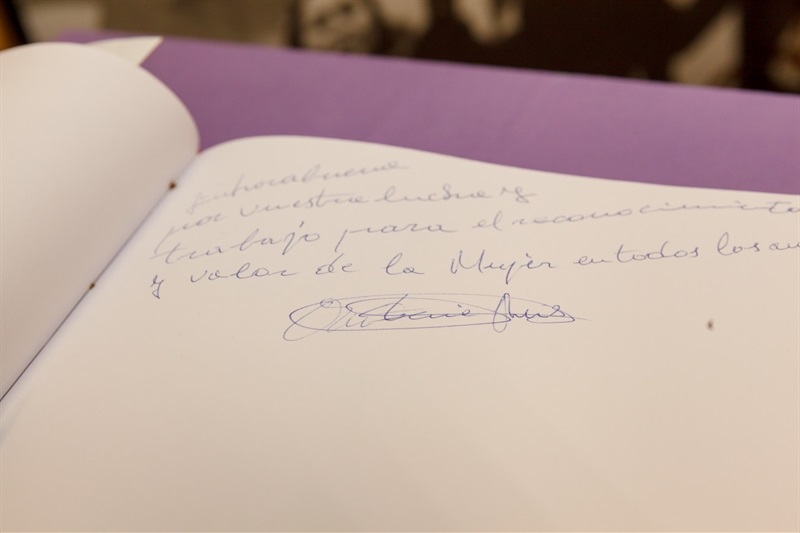 Enhorabuena
por vuestra lucha y
trabajo para el reconocimiento
y valor de la Mujer en todos los